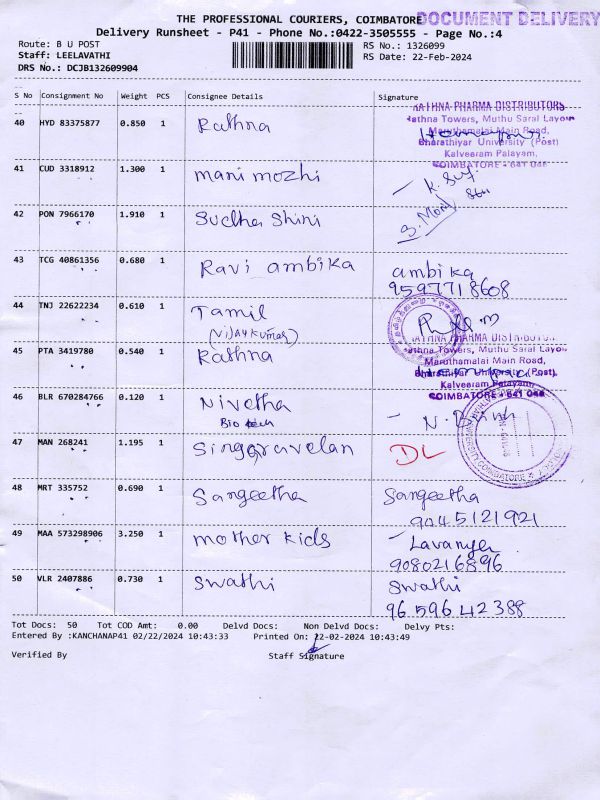 THE PROFESSIONAL COURIERS, COIMBATORE
DOCUMENT DELIVERY
Delivery Runsheet - P41 - Phone No.:0422-3505555 - Page No.:4
Route: B U POST
RS No.: 1326099
Staff: LEELAVATHI
RS Date: 22-Feb-2024
DRS No.: DCJB132609904
S No Consignment No Weight PCS Consignee Details Signature
40 HYD 83375877 0.850 1 Rathna
RATHNA PHARMA DISTRIBUTORS
Rathna Towers, Muthu Saral Layou
Maruthamalai Main Road,
Bharathiyar University (Post)
Kalveeram Palayam,
COIMBATORE - 641 046
41 CUD 3318912 1.300 1 mani mozhi
42 PON 7966170 1.910 1 Sudha Shini
43 TCG 40861356 0.680 1 Ravi ambika ambika
9597718608
44 TNJ 22622234 0.610 1 Tamil
(Vijaykumar)
45 PTA 3419780 0.540 1 Rathna
RATHNA PHARMA DISTRIBUT
Rathna Towers, Muthu Saral Layou
Maruthamalai Main Road,
Bharathiyar University (Post),
Kalveeram Palayam,
COIMBATORE - 641 046
46 BLR 670284766 0.120 1 Nivetha
Bio tech
47 MAN 268241 1.195 1 Singaravelan DL
48 MRT 335752 0.690 1 Sangeetha Sangeetha
9045121921
49 MAA 573298906 3.250 1 mother kids Lavanya
9080216896
50 VLR 2407886 0.730 1 Swathi Swathi
9659642388
Tot Docs: 50 Tot COD Amt: 0.00 Delvd Docs: Non Delvd Docs: Delvy Pts:
Entered By :KANCHANAP41 02/22/2024 10:43:33 Printed On: 22-02-2024 10:43:49
Verified By Staff Signature